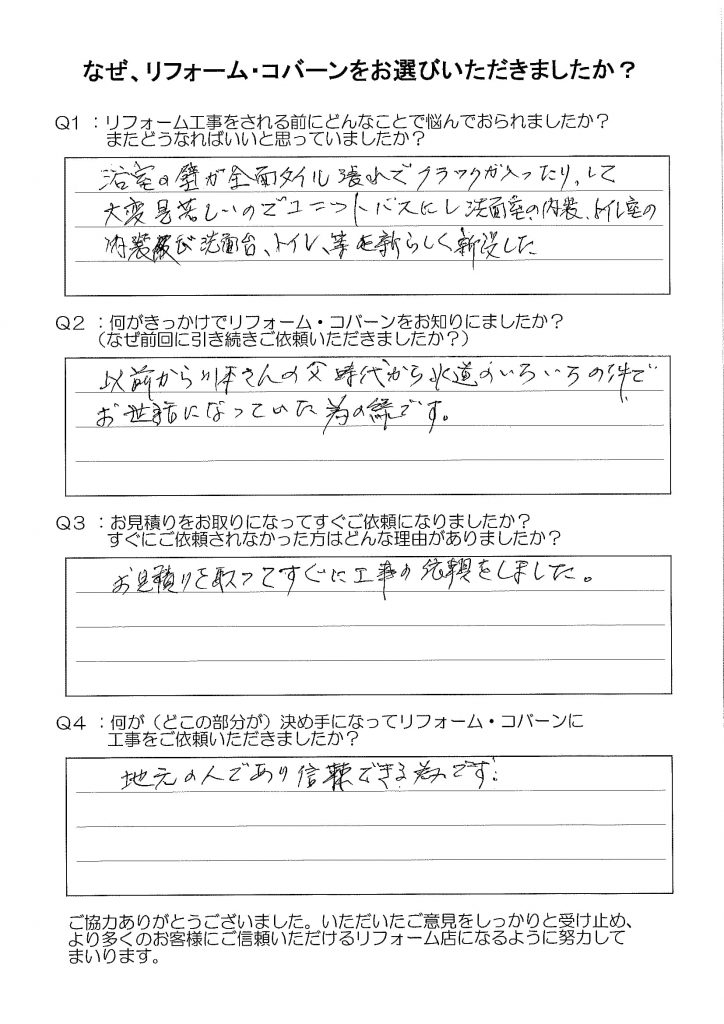 なぜ、リフォーム・コバーンをお選びいただきましたか？
Q1 ：リフォーム工事をされる前にどんなことで悩んでおられましたか？
またどうなればいいと思っていましたか？
浴室の壁が全面タイル張れでクラックが入ったり､して
大変見苦しいのでユニットバスにし洗面室の内装、トイレ室の
内装及び洗面台、トイレ、等を新らしく新設した
Q2 ：何がきっかけでリフォーム・コバーンをお知りにましたか？
（なぜ前回に引き続きご依頼いただきましたか？）
以前から川本さんの父時代から水道のいろいろの件で
お世話になっていた為の縁です。
Q3 ：お見積りをお取りになってすぐご依頼になりましたか？
すぐにご依頼されなかった方はどんな理由がありましたか？
お見積りを取ってすぐに工事の依頼をしました。
Q4 ：何が（どこの部分が）決め手になってリフォーム・コバーンに
工事をご依頼いただきましたか？
地元の人であり信頼できる為です。
ご協力ありがとうございました。いただいたご意見をしっかりと受け止め、
より多くのお客様にご信頼いただけるリフォーム店になるように努力して
まいります。